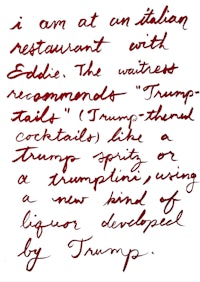 i am at an italian
restaurant with
Eddie. The waitress
recommends "Trump-
tails" (Trump-themed
cocktails) like a
trump spritz or
a trumptini, using
a new kind of
liquor developed
by Trump.